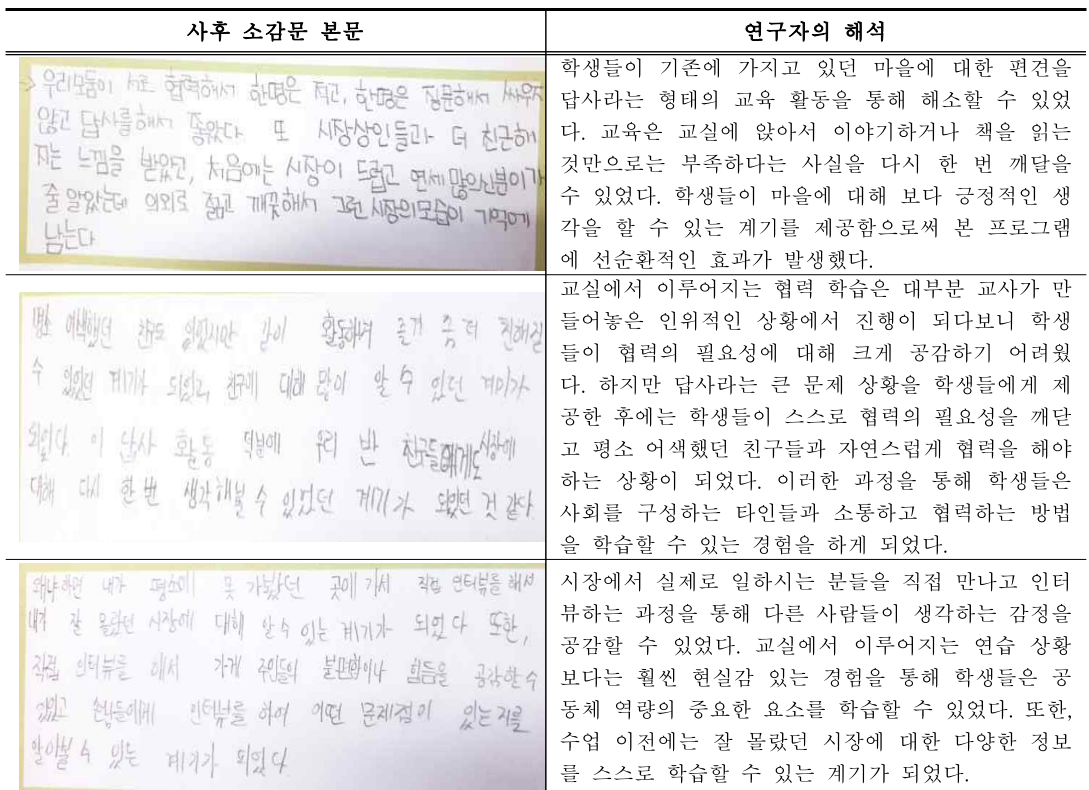 사후 소감문 본문
연구자의 해석
→ 우리모둠이 서로 협력해서 한명은 적고, 한명은 질문해서 싸우지
않고 답사를 해서 좋았다. 또 시장상인들과 더 친근해
지는 느낌을 받았고, 처음에는 시장이 드럽고 연세 많으신분이가
줄 알았는데 의외로 젊고 깨끗해서 그런 시장의 모습이 기억에
남는다
학생들이 기존에 가지고 있던 마을에 대한 편견을
답사라는 형태의 교육 활동을 통해 해소할 수 있었
다. 교육은 교실에 앉아서 이야기하거나 책을 읽는
것만으로는 부족하다는 사실을 다시 한 번 깨달을
수 있었다. 학생들이 마을에 대해 보다 긍정적인 생
각을 할 수 있는 계기를 제공함으로써 본 프로그램
에 선순환적인 효과가 발생했다.
어색했던 친구도 있었지만 같이 활동하며 좀 더 친해질
수 있었던 계기가 되었고, 친구에 대해 많이 알 수 있던 계기가
되었다. 이 답사 활동 덕분에 우리 반 친구들 시장에
대해 다시 한번 생각해볼 수 있었던 계기가 되었던 것 같다.
교실에서 이루어지는 협력 학습은 대부분 교사가 만
들어놓은 인위적인 상황에서 진행이 되다보니 학생
들이 협력의 필요성에 대해 크게 공감하기 어려웠
다. 하지만 답사라는 큰 문제 상황을 학생들에게 제
공한 후에는 학생들이 스스로 협력의 필요성을 깨닫
고 평소 어색했던 친구들과 자연스럽게 협력을 해야
하는 상황이 되었다. 이러한 과정을 통해 학생들은
사회를 구성하는 타인들과 소통하고 협력하는 방법
을 학습할 수 있는 경험을 하게 되었다.
왜냐하면 내가 평소에 못 가봤던 곳에 가서 직접 인터뷰를 해서
내가 잘 몰랐던 시장에 대해 알 수 있는 계기가 되었다 또한,
직접 인터뷰를 해서 가게 주인들의 불편함이나 힘듦을 공감할 수
있었고 손님들에게 인터뷰를 하여 어떤 문제점이 있는지를
알아볼 수 있는 계기가 되었다
시장에서 실제로 일하시는 분들을 직접 만나고 인터
뷰하는 과정을 통해 다른 사람들이 생각하는 감정을
공감할 수 있었다. 교실에서 이루어지는 연습 상황
보다는 훨씬 현실감 있는 경험을 통해 학생들은 공
동체 역량의 중요한 요소를 학습할 수 있었다. 또한,
수업 이전에는 잘 몰랐던 시장에 대한 다양한 정보
를 스스로 학습할 수 있는 계기가 되었다.